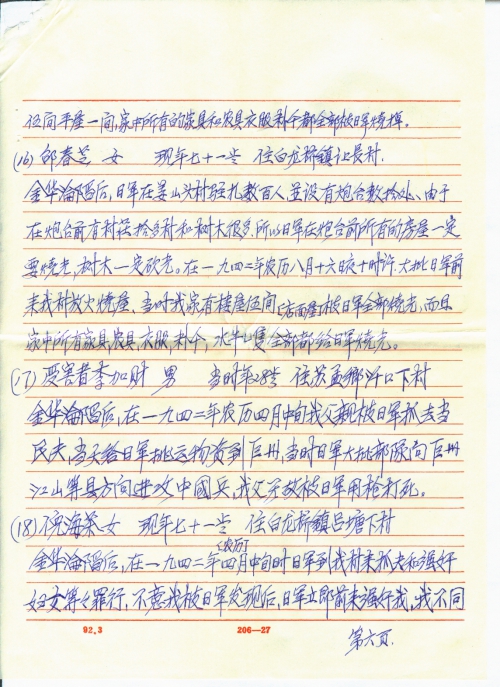 伍间平屋一间,家中所有的家具和农具衣服补个都全部被日军烧掉。
(16) 邵春芝 女 现年七十一岁 住白龙桥镇让長村.
金华淪陷后,日军在姜山头村驻扎数百人並设有炮台数拾处、由于
在炮台前有村莊拾多村和树木很多,所以日军在炮台前所有的房屋一定
要烧光,树木一定砍光。在一九四二年农历八月十六日夜十时许,大批日军前
来我村放火烧屋、当时我家有楼屋伍间(店面屋)被日军全部烧光,而且
家中所有家具,农具,衣服,补个,水牛一隻全部都给日军烧光。
(17) 受害者季加财 男 当时年28岁 住苏孟鄉汁口下村
金华淪陷后,在一九四二年农历四月中旬我父親被日军抓去当
民夫,当天给日军挑运物资到巨州,当时日军大批部队向巨州
江山等县方向进攻中國兵,我父亲被日军用枪打死。
(18) 倪海菜 女 现年七十一岁 住白龙桥鎮吕塘下村
金华淪陷后,在一九四二年(农历)四月中旬时日军到我村来抓夫和强奸
妇女等罪行,不意我被日军发现后,日军立即前来强奸我,我不同
92.3 206—27
第六页.